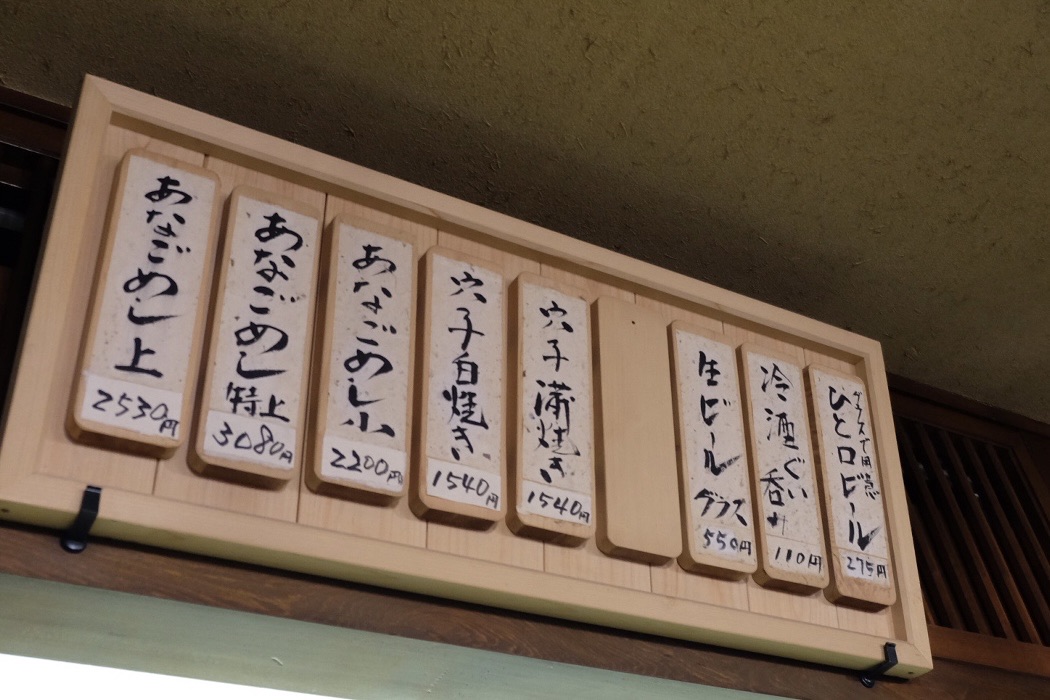 あなごめし上
2530円
あなごめし
特上
3080円
あなごめし小
2200円
穴子白焼き
1540円
穴子蒲焼き
1540円
生ビール
グラス
550円
冷酒ぐい
呑み
110円
ひと口ビール
275円